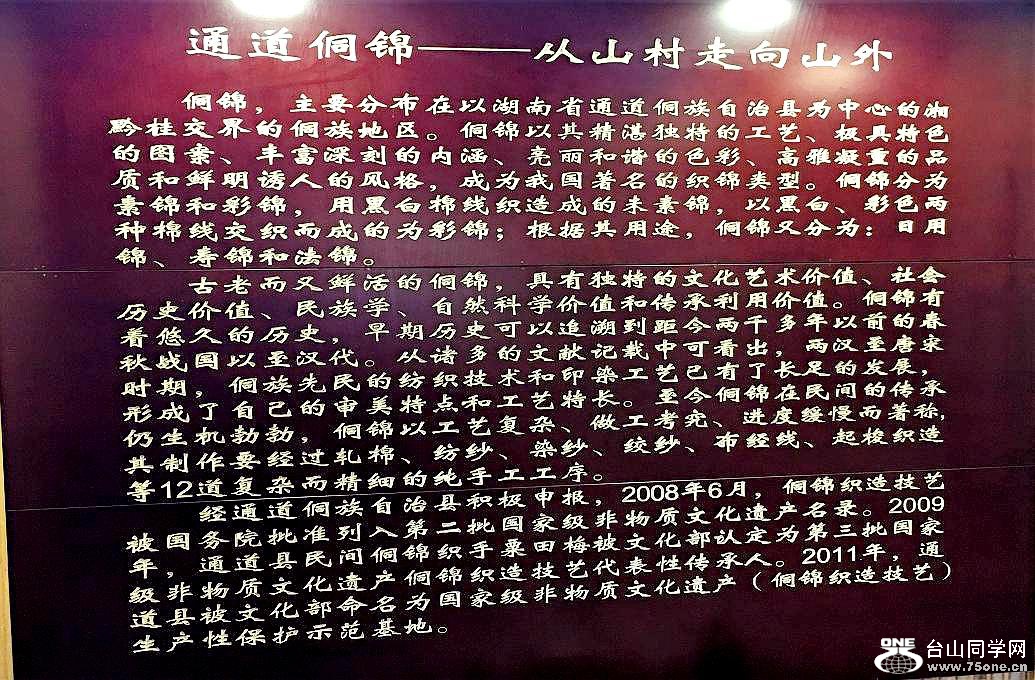 通道侗锦——从山村走向山外
侗锦，主要分布在以湖南省通道侗族自治县为中心的湘
黔桂交界的侗族地区。侗锦以其精湛独特的工艺、极具特色
的图案、丰富深刻的内涵、亮丽和谐的色彩、高雅凝重的品
质和鲜明诱人的风格，成为我国著名的织锦类型。侗锦分为
素锦和彩锦，用黑白棉线织造成的未素锦，以黑白、彩色两
种棉线交织而成的为彩锦；根据其用途，侗锦又分为：日用
锦、寿锦和法锦。
古老而又鲜活的侗锦，具有独特的文化艺术价值、社会
历史价值、民族学、自然科学价值和传承利用价值。侗锦有
着悠久的历史，早期历史可以追溯到距今两千多年以前的春
秋战国以至汉代。从诸多的文献记载中可看出，两汉至唐宋
时期，侗族先民的纺织技术和印染工艺已有了长足的发展，
形成了自己的审美特点和工艺特长。至今侗锦在民间的传承
仍生机勃勃，侗锦以工艺复杂、做工考究、进度缓慢而著称，
其制作要经过轧棉、纺纱、染纱、绞纱、布经线、起梭织造
等12道复杂而精细的纯手工工序。
经通道侗族自治县积极申报，2008年6月，侗锦织造技艺
被国务院批准列入第二批国家级非物质文化遗产名录。2009
年，通道县民间侗锦织手粟田梅被文化部认定为第三批国家
级非物质文化遗产侗锦织造技艺代表性传承人。2011年，通
道县被文化部命名为国家级非物质文化遗产（侗锦织造技艺）
生产性保护示范基地。
ONE 台山同学网
www.75one.cn